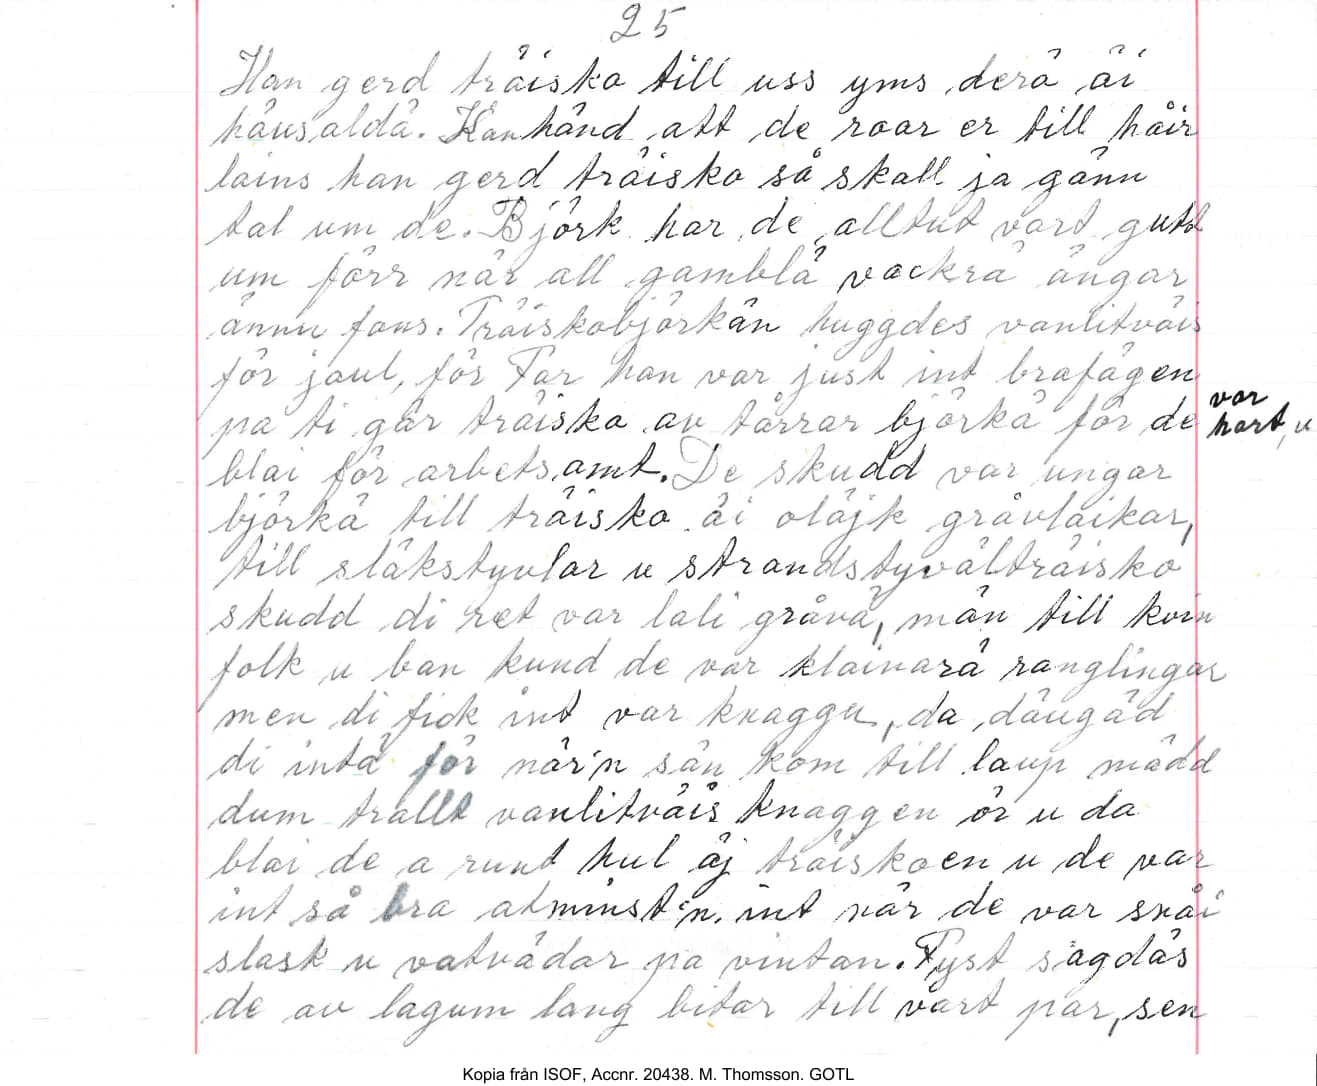 25
Han gerd träisko till uss yms derä äi
häusaldä. Kanhänd att de roar er till håir
lains han gerd träisko så skall ja gänn
tal um de. Björk har de alltut vart gutt
um förr når all gamblä vackrä ängar
ännu fans. Träiskobjörkän huggdes vanlitväis
för jaul, för Far han var just int brafägen
pa ti gär träisko av tårrar björkä för de var hart, u
blai för arbetsamt. De skudd var ungar
björkä till träisko äi oläjk grävlaikar,
till släkstyvlar u strandstyvälträisko
skudd di ret var lali grävä, män till kvin
folk u ban kund de var klainarä ranglingar
men di fick int var knaggu, da däugäd
di intä för när'n sän kom till laup mädd
dum trallt vanlitväis knaggen ör u da
blai de a runt hul äj träiskoen u de var
int så bra atminst'n. int når de var snåi
slask u vatvädar pa vintan. Fyst sägdäs
de av lagum lang bitar till vart par, sen
Kopia från ISOF, Accnr. 20438. M. Thomsson. GOTL